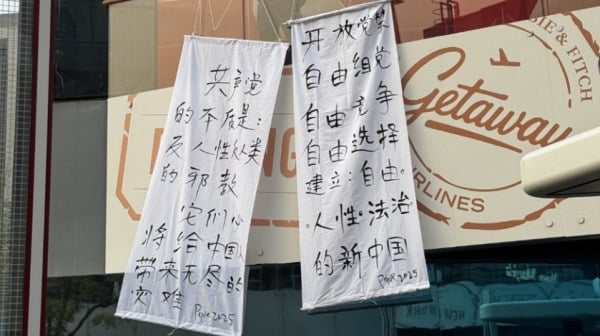 共产党
的本质是:
反人性人类
的邪教
它们必
将给中国
带来无尽的
灾难
2025
开放党禁
自由组党
自由竞争
自由选择
建立:自由.
.人性.法治
的新中国
2025
IE & FITCH
Getaway
IRLINES